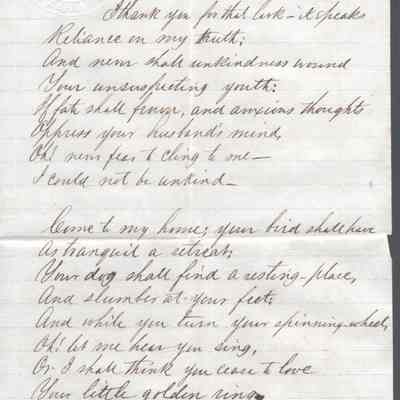 I thank you for that look — it speaks
Reliance on my truth;
And never shall unkindness wound
Your unsuspecting youth:
If fate shall frown, and anxious thoughts
Oppress your husbands mind,
Oh! never fear to cling to me—
I could not be unkind—
Come to my home; your bird shall have
As tranquil a retreat;
Your dog shall find a resting-place,
And slumber at your feet;
And while you turn your spinning-wheel,
Oh! let me hear you sing,
Or I shall think you cease to love
Your little golden ring